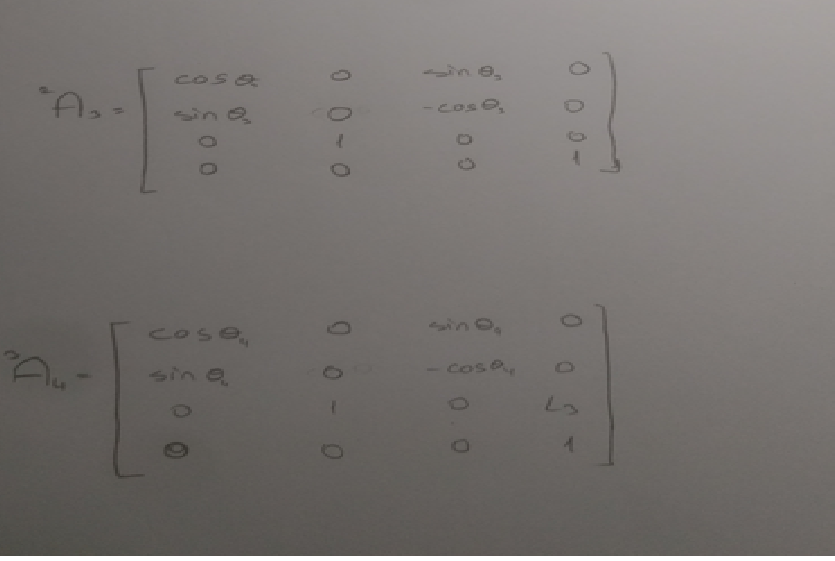 ²A₃ = [ cos θ 0 sin θ₃ 0
sin θ₃ 0 -cos θ₃ 0
0 1 0 0
0 0 0 1 ]
³A₄ = [ cos θ₄ 0 sin θ₄ 0
sin θ₄ 0 -cos θ₄ 0
0 1 0 L₃
0 0 0 1 ]